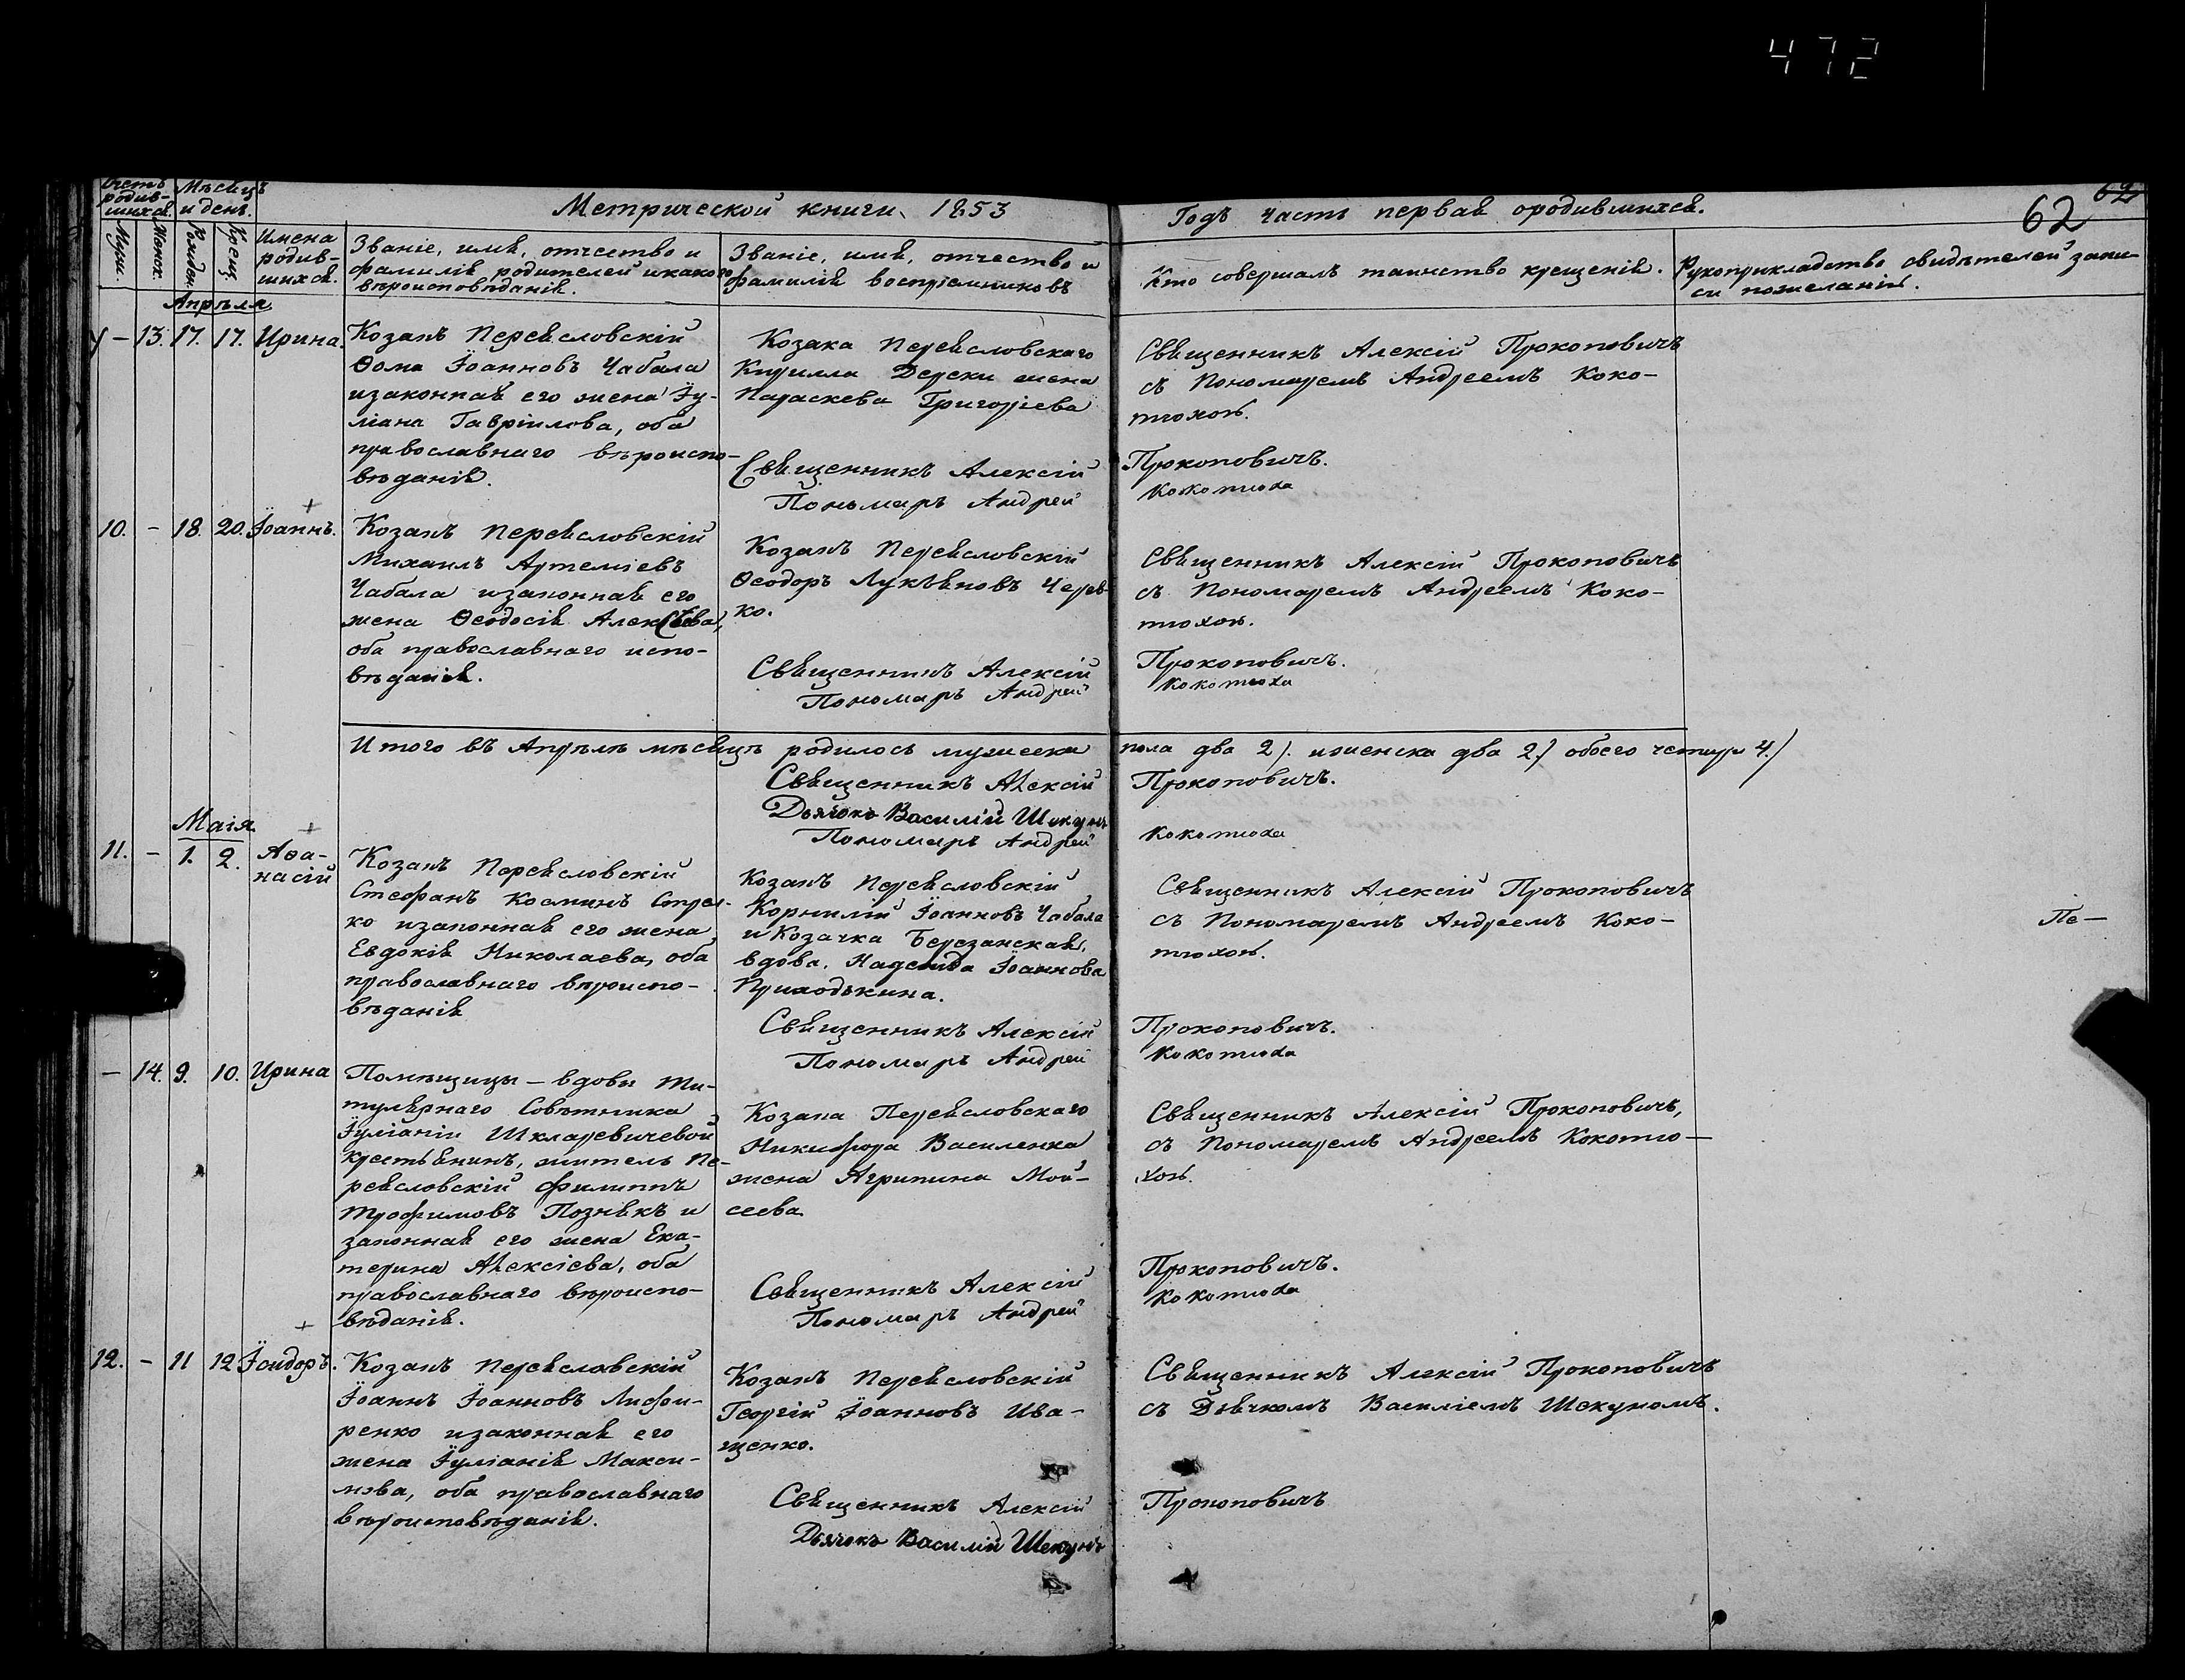 472
62
62
Счетъ родив-шихся.
Мѣсяцъ и день.
Метрической книги 1853
Годъ часть первая ородившихся.
Муж.
Женск.
Рожден.
Крещ.
Имена родив-шихся.
Званіе, имя, отчество и
фамилія родителей икакого
вѣроисповѣданія.
Званіе, имя, отчество и
фамилія воспріемниковъ
Кто совершалъ таинство крещенія.
Рукоприкладство свидѣтелей запи-
си пожеланію.
Апрѣля
У – 13. 17. 17. Ирина.
Козакъ Переясловскій
Ѳома Іоанновъ Чабала
изаконная его жена Іу-
ліана Гавріилова, оба
православнаго вѣроиспо-
вѣданія.
Козака Переясловскаго
Кирилла Дерски жена
Параскева Григоріева
Священникъ Алексій
Пономаръ Андрей
Священникъ Алексій Прокоповичъ
съ Пономаремъ Андреемъ Коко-
тюхою.
Прокоповичъ.
Кокотюха
10. – 18. 20. Іоаннъ.
Козакъ Переясловскій
Михаилъ Артеміевъ
Чабала изаконная его
жена Ѳеодосія Алексѣева,
оба православнаго испо-
вѣданія.
Козакъ Переясловскій
Ѳеодоръ Лукьяновъ Черев-
ко.
Священникъ Алексій
Пономаръ Андрей
Священникъ Алексій Прокоповичъ
съ Пономаремъ Андреемъ Коко-
тюхою.
Прокоповичъ.
Кокотюха
Итого въ Апрѣлѣ мѣсяцѣ родилось мужеска пола два 2). иженска два 2.) обоего четыре 4.)
Священникъ Алексій Прокоповичъ.
Дьячокъ Василій Шекунъ
Пономаръ Андрей Кокотюха
Маія
11. – 1. 2. Аѳа-
насій
Козакъ Переясловскій
Стефанъ Косминъ Стрел-
ко изаконная его жена
Евдокія Николаева, оба
православнаго вѣроиспо-
вѣданія
Козакъ Переясловскій
Корнилій Іоанновъ Чабала
и Козачка Березанская,
вдова, Надежда Іоаннова
Приходькина.
Священникъ Алексій
Пономаръ Андрей
Священникъ Алексій Прокоповичъ
съ Пономаремъ Андреемъ Коко-
тюхою.
Пе-
Прокоповичъ.
Кокотюха
– 14. 9. 10. Ирина
Помѣщицы – вдовы Ти-
тулярнаго Совѣтника
Іуліаніи Шкларевичевой
крестьянинъ, житель Пе-
реясловскій Филиппъ
Трофимовъ Познякъ и
законная его жена Ека-
терина Алексіева, оба
православнаго вѣроиспо-
вѣданія.
Козака Переясловскаго
Никифора Василенка
жена Агрипина Мои-
сеева
Священникъ Алексій
Пономаръ Андрей
Священникъ Алексій Прокоповичъ,
съ Пономаремъ Андреемъ Кокотю-
хою.
Прокоповичъ.
Кокотюха
12. – 11 12 Ісидоръ.
Козакъ Переяславскій
Іоаннъ Іоанновъ Лифи-
ренко изаконная его
жена Іуліанія Макси-
мова, оба православнаго
вѣроисповѣданія.
Козакъ Переясловскій
Георгій Іоанновъ Ива-
щенко.
Священникъ Алексій
Дьячокъ Василій Шекунъ
Священникъ Алексій Прокоповичъ
съ Дьячкомъ Василіемъ Шекуномъ.
Прокоповичъ